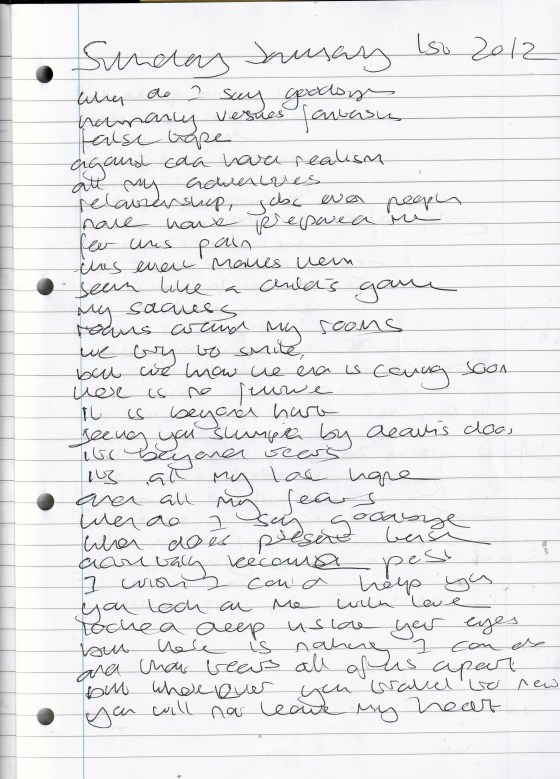 Sunday January 1st 2012
when do I say goodbye
humanity versus fantasies
false hope
against cold hard realism
all my adventures
relationship, jobs even people
none have prepared me
for this pain
this event makes them
seem like a child's game
my sadness
roams around my rooms
we try to smile,
but we know the end is coming soon
there is no future
it is beyond hurt
seeing you slumped by death's door
its beyond tears
its all my lost hope
and all my fears
when do I say goodbye
when does present tense
actually become past
I wish I could help you
you look at me with love
locked deep inside your eyes
but there is nothing I can do
and that tears all of us apart
but wherever you travel to new
you will not leave my heart